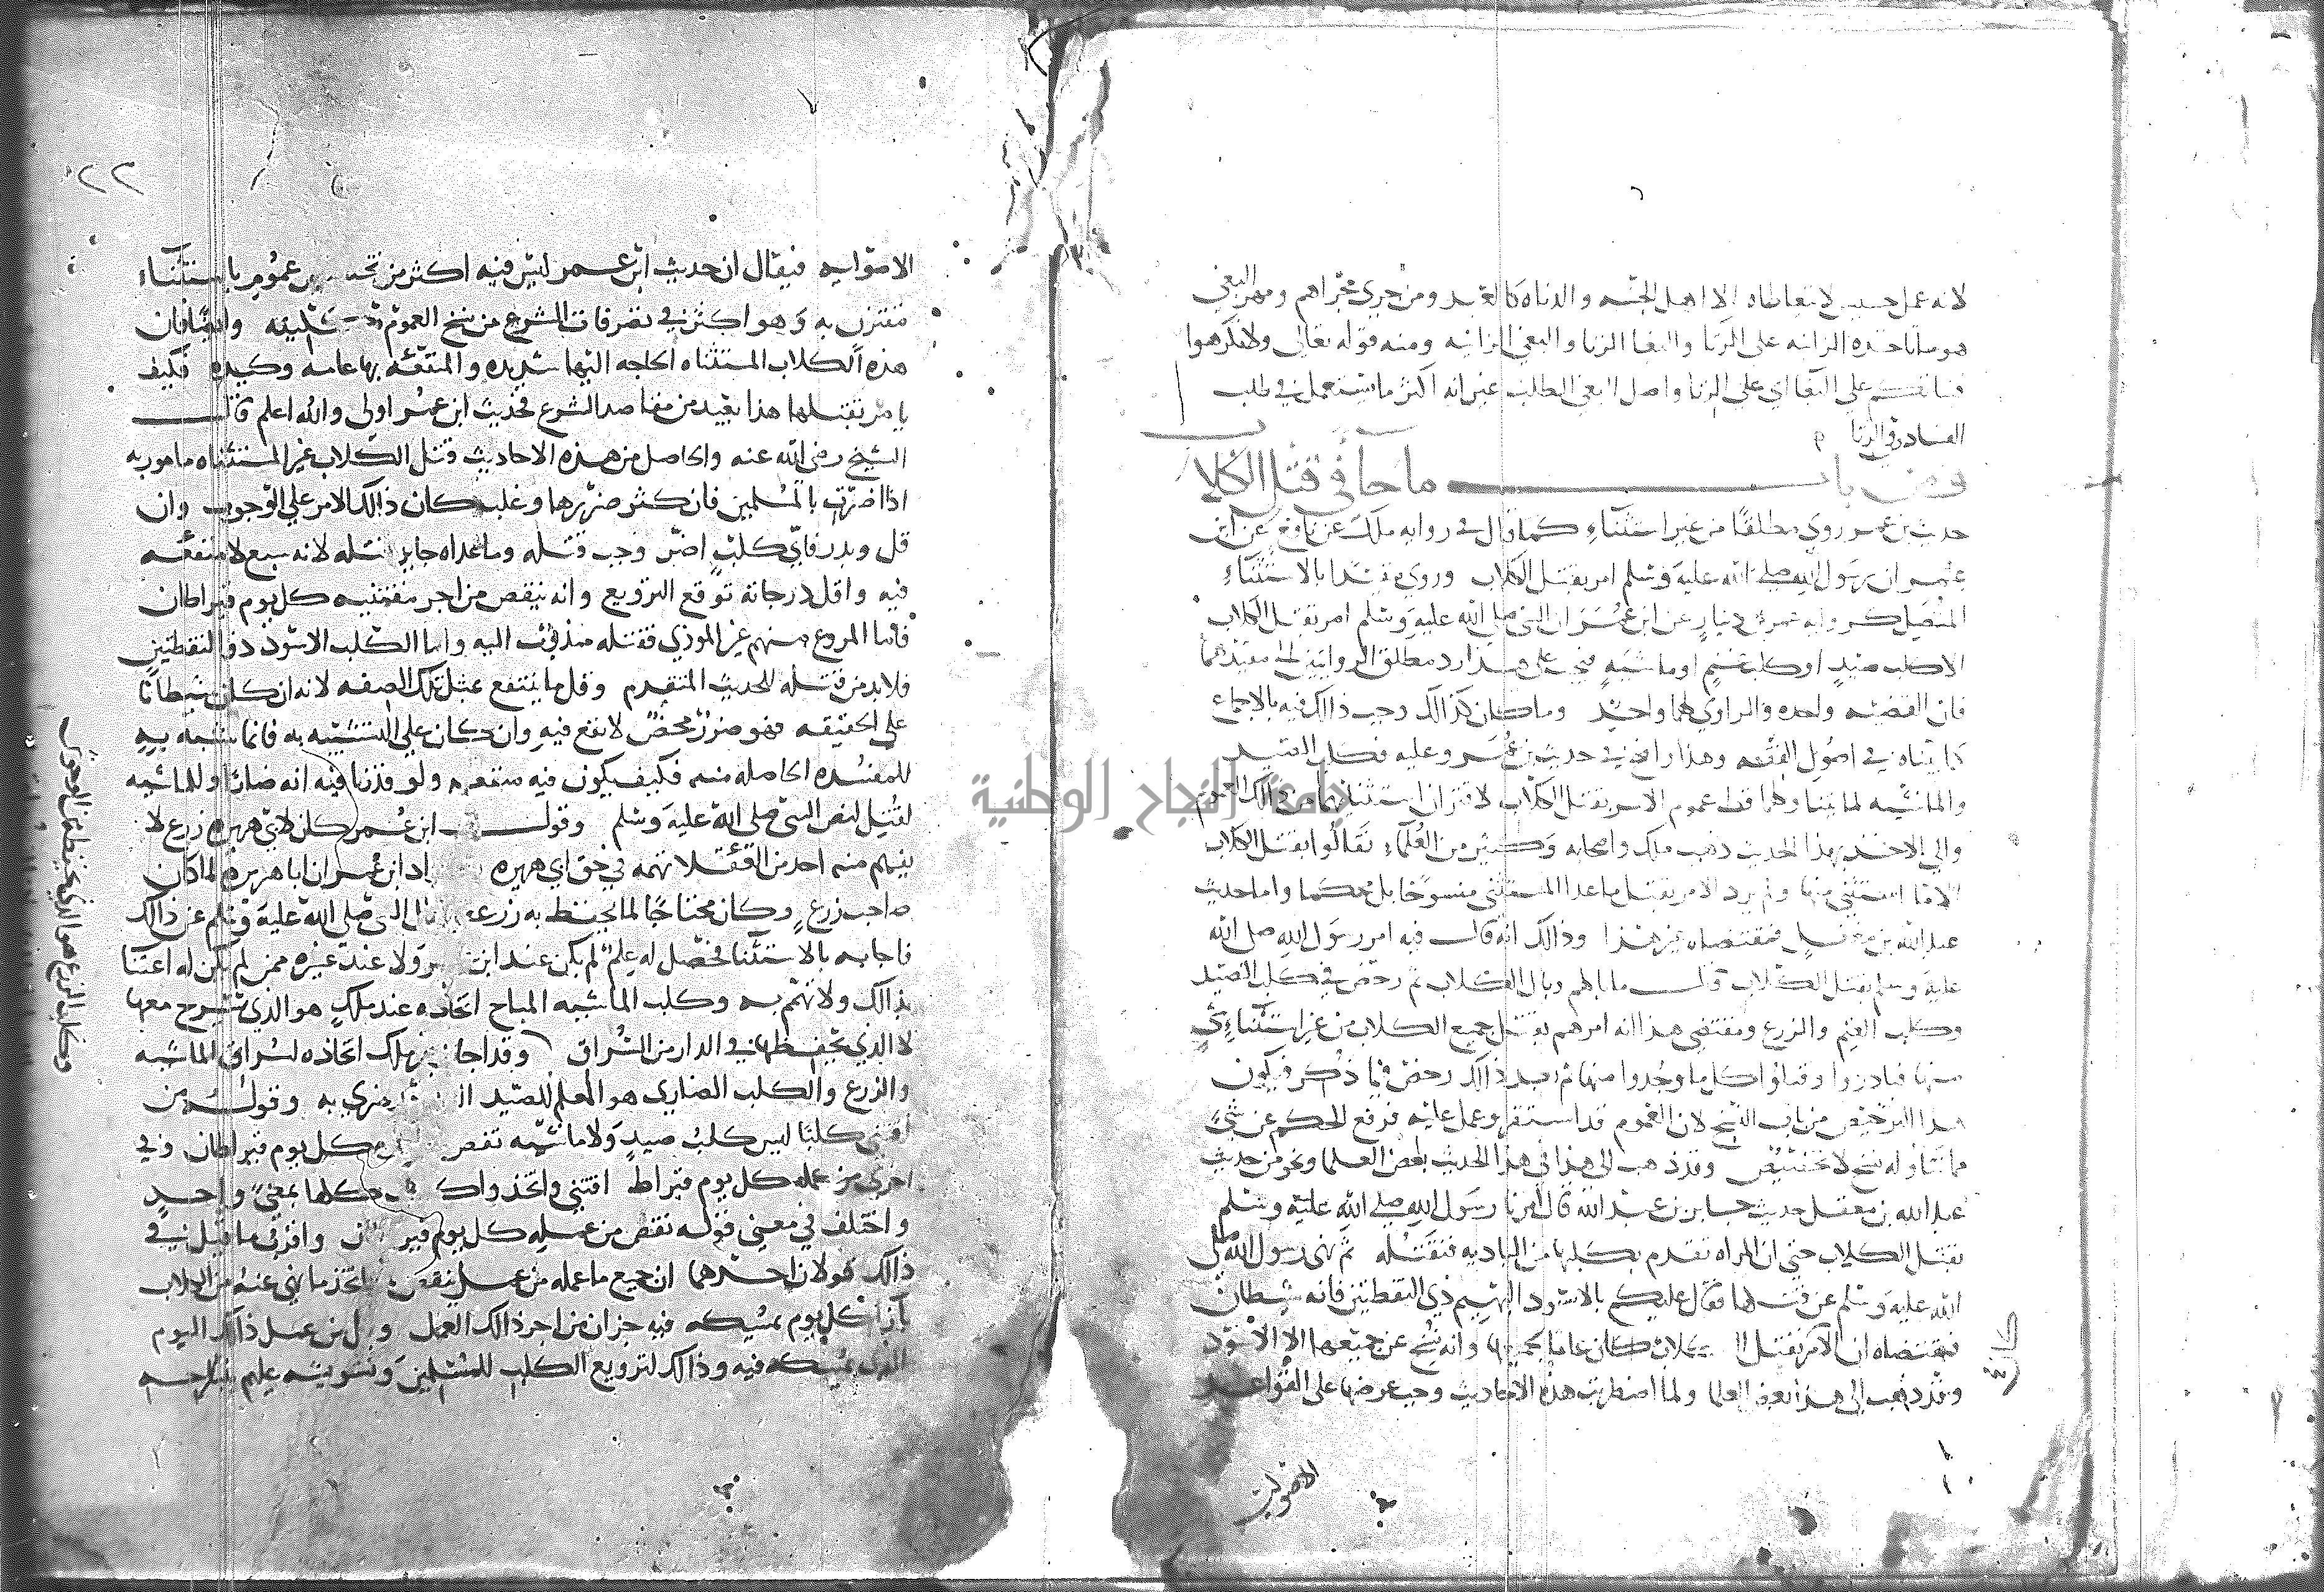 لانه عمل خسيس لا يتعاطاه الا اهل الخسه والدناه كالعبد ومن جري مجراهم ومهر البغي
هو ما تاخذه الزانيه على الزنا والبغا الزنا والبغي الزانيه ومنه قوله تعالى ولا تكرهوا
فتياتكم علي البغا اي على الزنا واصل البغي الطلب غير انه اكثر ما يستعمل في طلب
الفساد والزنا
ومن باب ما جآ في قتل الكلاب
حديث بن عمر روي مطلقا من غير استثناء كما قال في روايه ملك عن نافع عن ابن
عمر ان رسول الله صلى الله عليه وسلم امر بقتل الكلاب وروي مقيدا بالاستثناء
المتصل كروايه عمرو بن دينار عن ابن عمر ان النبي صلى الله عليه وسلم امر بقتل الكلاب
الا كلب صيد او كلب غنم او ماشيه فيجب على هذا رد مطلق الروايتين الى مقيدهما
فان القضيه واحده والراوي لهما واحد وما كان كذالك وجب ذالك فيه بالاجماع
كما بيناه في اصول الفقه وهذا واضح في حديث بن عمر وعليه فكلب الصيد
والماشيه لم يتناولهما قط عموم الامر بقتل الكلاب لاقتران استثنايهما من ذالك العموم
والي الاخذ بهذا الحديث ذهب ملك واصحابه وكثير من العلماء فقالوا بقتل الكلاب
الا ما استثني منها ولم يرد الامر بقتل ما عدا المستثنى منسوخا بل محكما واما حديث
عبد الله بن مغفل فمقتضاه غير هذا وذالك انه قال فيه امر رسول الله صلى الله
عليه وسلم بقتل الكلاب ثم قال ما بالهم وبال الكلاب ثم رخص في كلب الصيد
وكلب الغنم والزرع ومقتضي هذا انه امرهم بقتل جميع الكلاب من غير استثناء شي
منها فبادروا وقتلوا كل ما وجدوا منها ثم بعد ذالك رخص فيما ذكر فيكون
هذا الترخيص من باب النسخ لان العموم قد استقر وعمل عليه فرفع الحكم عن شي
مما تناوله نسخ لا تخصيص وقد ذهب الى هذا في هذا الحديث بعض العلما ونحو من حديث
عبد الله بن مغفل حديث جابر بن عبد الله قال امرنا رسول الله صلى الله عليه وسلم
بقتل الكلاب حتى ان المراه تقدم بكلبها من الباديه فنقتله ثم نهى رسول الله صلى
الله عليه وسلم عن قتلها فقال عليكم بالاسود البهيم ذي النقطتين فانه شيطان
فمقتضاه ان الامر بقتل الكلاب كان عاما لجميعها وانه نسخ عن جميعها الا الاسود
وقد ذهب الى هذا بعض العلما ولما اضطربت هذه الاحاديث وجب عرضها على القواعد
الاصوليه
٢٢
الاصوليه فيقال ان حديث ابن عمر ليس فيه اكثر من تخصيص عموم باستثناء
مقترن به وهو اكثر في تصرفات الشرع من نسخ العموم بكليته وايضا فان
هذه الكلاب المستثناه الحاجه اليها شديده والمنفعه بها عامه وكيده فكيف
يامر بقتلها هذا بعيد من مقاصد الشرع فحديث ابن عمر اولى والله اعلم قال
الشيخ رضي الله عنه والحاصل من هذه الاحاديث قتل الكلاب غير المستثناه مامور به
اذا اضرت بالمسلمين فان كثر ضررها وغلب كان ذالك الامر على الوجوب وان
قل وندر فاي كلب اضر وجب قتله وما عداه جايز قتله لانه سبع لا منفعه
فيه واقل درجاته توقع الترويع وانه ينقص من اجر مقتنيه كل يوم قيراطان
فاما المروع منهم غير الموذي فقتله مندوب اليه واما الكلب الاسود ذو النقطتين
فلا بد من قتله للحديث المتقدم وقل ما ينتفع بمثل تلك الصفه لانه ان كان شيطانا
على الحقيقه فهو ضرر محض لا نفع فيه وان كان على التشبيه به فانما شبه به
للمفسده الحاصله منه فكيف يكون فيه منفعه ولو قدرنا فيه انه ضار او للماشيه
لقتل لنص النبي صلى الله عليه وسلم وقول ابن عمر كان لابي هريره زرع لا
يفهم منه احد من العقلا تهمه في حق ابي هريره اراد ابن عمر ان ابا هريره لما كان
صاحب زرع وكان محتاجا لما يحتفظ به زرعه سال النبي صلى الله عليه وسلم عن ذالك
فاجابه بالاستثنا فحصل له علم لم يكن عند ابن عمر ولا عند غيره ممن لم يكن له اعتنا
بذالك ولا تهمم به وكلب الماشيه المباح اتخاذه عند ملك هو الذي يسرح معها
لا الذي يحفظها في الدار من السراق وقد اجاز غير ملك اتخاذه لسراق الماشيه
والزرع والكلب الضاري هو المعلم للصيد الذي ضري به وقوله من
اقتني كلبا ليس كلب صيد ولا ماشيه نقص من اجره كل يوم قيراطان وفي
اخري من عمله كل يوم قيراط اقتني واتخذ كلها بمعني واحد
واختلف في معني قوله نقص من عمله كل يوم قيراطان واقرب ما قيل في
ذالك قولان احدهما ان جميع ما عمله من عمل ينقص لمن اتخذ ما نهي عنه من الكلاب
بازاء كل يوم يمسكه فيه جزان من اجر ذالك العمل وقيل من عمل ذالك اليوم
الذي يمسكه فيه وذالك لترويع الكلب للمسلمين وتشويشه عليهم بنباحه
وكلب الزرع هو الذي يحفظه من الوحوش